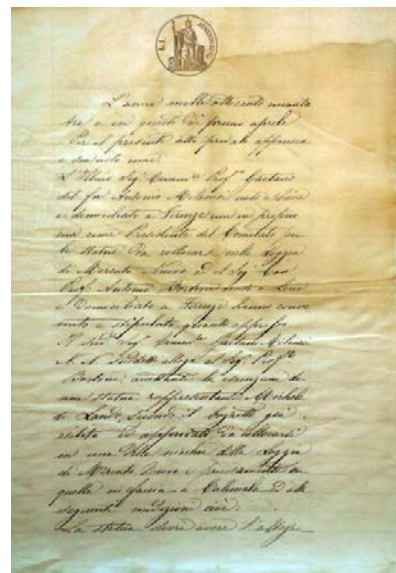 L'anno mille ottocento novanta
tre e in questo dì primo aprile
Per il presente atto privato apparisca
e sia noto come
L'Illmo Sig. Prof. Gaetano
del fu Antonio
e domiciliato a Firenze non in proprio
ma come Presidente del Comitato per
le statue da collocarsi nelle Loggie
di Mercato Nuovo ed il Sig. Cav.
Prof. Antonio Bortone nato a
e Domiciliato a Firenze hanno conve
nuto e stipulato quanto appresso
Il Sig. Gaetano
N. N. suddetto alloga al Sig. Prof.
Bortone accettante la esecuzione di
una statua rappresentante Michele
di Lando, secondo il bozzetto già
ed approvato da collocarsi
in una delle nicchie della Loggia
di Mercato Nuovo e precisamente in
quella in faccia a Calimala ed alle
seguenti condizioni cioè.
La statua dovrà avere l'altezza